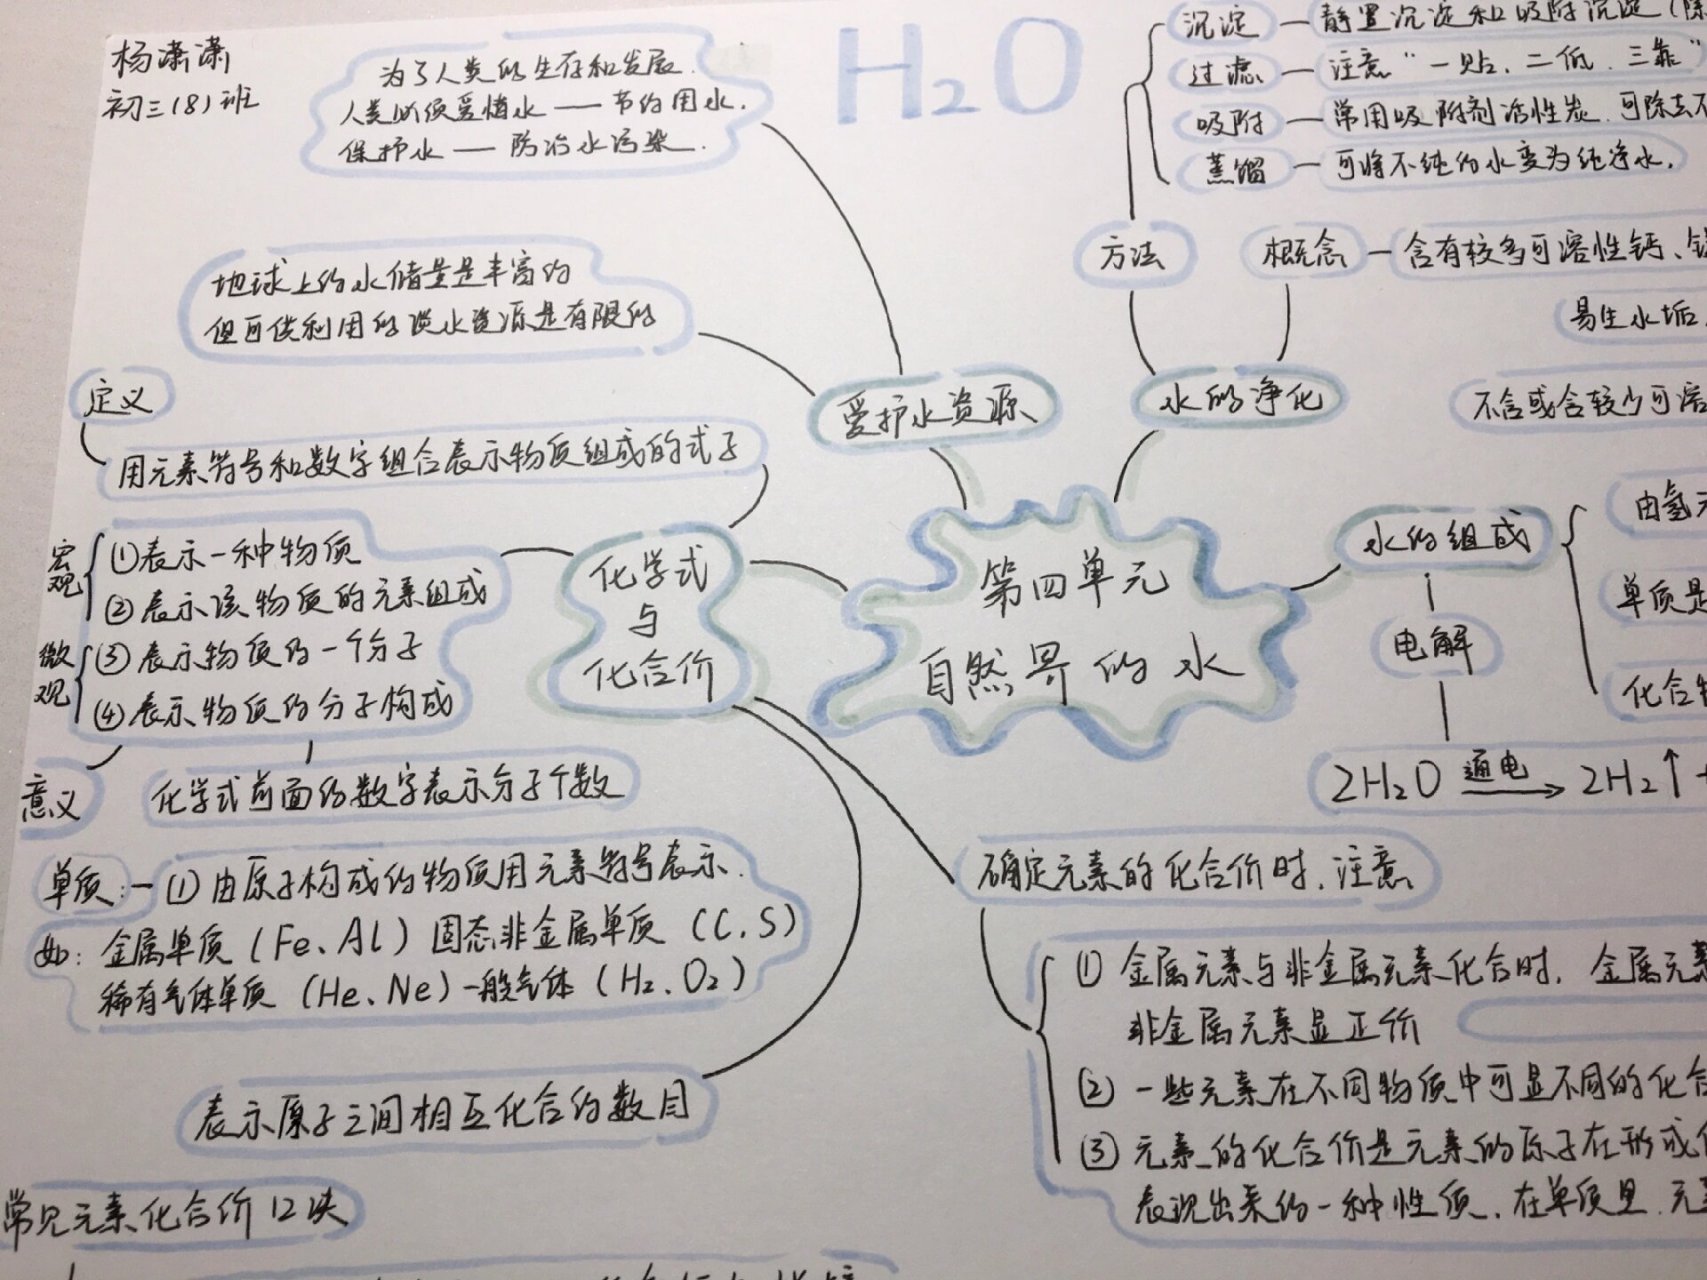 杨潇潇
初三(8)班
H₂O
为了人类的生存和发展.
人类必须爱惜水——节约用水.
保护水——防治水污染.
地球上的水储量是丰富的
但可供利用的淡水资源是有限的
爱护水资源
沉淀—静置沉淀和吸附沉淀(
过滤—注意"一贴、二低、三靠"
吸附—常用吸附剂活性炭.可除去不
蒸馏—可将不纯的水变为纯净水.
方法
概念—含有较多可溶性钙、
易生水垢
水的净化
不含或含较少可溶
定义
用元素符号和数字组合表示物质组成的式子
宏观
①表示一种物质
②表示该物质的元素组成
微观
③表示物质的一个分子
④表示物质的分子构成
意义
化学式前面的数字表示分子个数
化学式
与
化合价
第四单元
自然界的水
水的组成
由氢元
单质是
化合物
电解
2H₂O 通电→ 2H₂↑
单质:—①由原子构成的物质用元素符号表示.
如:金属单质(Fe、Al)固态非金属单质(C.S)
稀有气体单质(He、Ne)一般气体(H₂、O₂)
表示原子之间相互化合的数目
常见元素化合价口诀
确定元素的化合价时.注意
①金属元素与非金属元素化合时.金属元素
非金属元素显正价
②一些元素在不同物质中可显不同的化合
③元素的化合价是元素的原子在形成化
表现出来的一种性质.在单质里.元